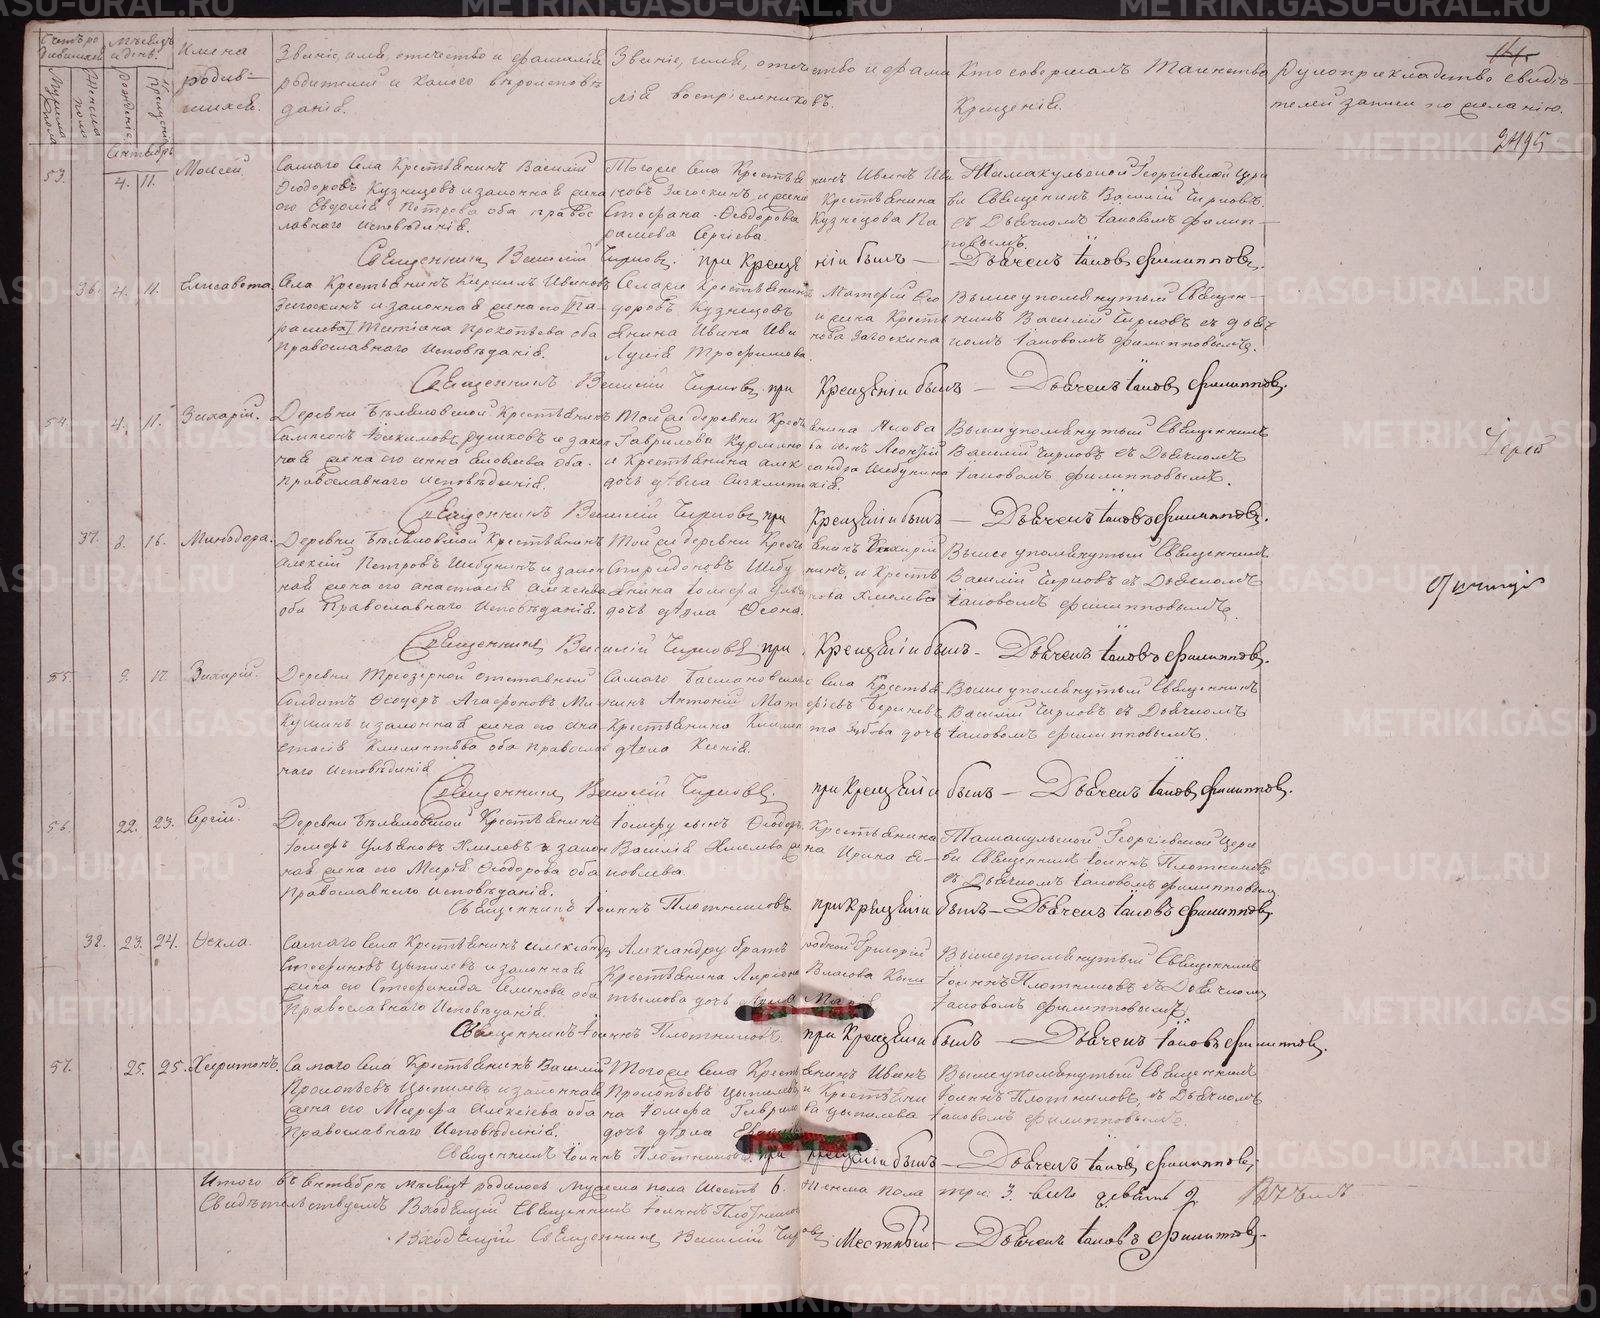 Счетъ родившихся
Мужеска пола
Женска пола
Мѣсяцъ и день.
Рожденія
Крещенія
Имена родив-
шихся.
Званіе, имя, отчество и фамилія
родителей и какого вѣроисповѣ
данія.
Званіе, имя, отчество и фами
лія воспріемниковъ.
Кто совершалъ таинство
Крещенія.
Рукоприкладство свидѣ-
телей записи по желанію.
2495
Сентябрь
53.
4. 11.
Моисей.
Самаго Села Крестьянинъ Василій
Ѳеодоровъ Кузнецовъ и законная жена
его Евдокія Петрова оба право
славнаго исповѣданія.
Тогоже Села Крестья нинъ Иванъ Ива
новъ Загоскинъ, и жена Крестьянина
Стефана Ѳеодорова Кузнецова Па
раскева Сергіева.
Тамакульской Георгіевской Церк
ви Священникъ Василій Чирковъ
съ Дьячкомъ Іаковомъ Филип-
повымъ.
Священникъ Василій Чирковъ. при Креще ніи былъ — Дьячекъ Іаковъ Филипповъ.
36. 4. 11.
Елисавета
Села Крестьянинъ Кириллъ Ивановъ
Загоскинъ и законная жена его
Татіана Прокопьева оба
Православнаго Исповѣданія.
Села Крестьянинъ Матѳей Ѳео
доровъ Кузнецовъ и жена Кресть
янина Ивана Ива нова Загоскина
Лукія Трофимова
Вышеупомянутый Священ-
никъ Василій Чирковъ съ дьяч
комъ Іаковомъ Филипповымъ.
Священникъ Василій Чирковъ при Крещеніи былъ — Дьячекъ Іаковъ Филипповъ.
54. 4. 11.
Захарій.
Деревни Бѣляковской Крестьянинъ
Сампсонъ Іоакимовъ Рушковъ и закон
ная жена его Анна Яковлева оба
Православнаго исповѣданія.
Той же деревни Кресть янина Іакова
Гаврилова сынъ Леонтій
и Крестьянина Алек сандра Шабунина
дочь дѣвка Синклити кія.
Вышеупомянутый Священникъ
Василій Чирковъ съ Дьячкомъ
Іаковомъ Филипповымъ.
Священникъ Василій Чирковъ при Крещеніи былъ — Дьячекъ Іаковъ Филипповъ.
37. 8. 16.
Минодора.
Деревни Бѣляковской Крестьянинъ
Алексій Петровъ Шабунинъ и закон
ная жена его Анастасія Алексѣева
оба Православнаго Исповѣданія.
Той же деревни Кресть янинъ Захарій
Спиридоновъ Шабу нинъ, и Кресть
янина Іосифа Улья нова Хмелева
дочь дѣвка
Вышеупомянутый Священникъ
Василій Чирковъ съ Дьячкомъ
Іаковомъ Филипповымъ.
Священникъ Василій Чирковъ при Крещеніи былъ — Дьячекъ Іаковъ Филипповъ.
55. 9. 17.
Захарій.
Деревни Трезерной отставный
Солдатъ Ѳеодоръ Агафоновъ Ми
кушинъ и законная жена его Ана
стасія Климентьева оба Православ
наго Исповѣданія
Самаго Басмановскаго Села Крестья
нинъ Антоній Мат ѳіевъ
Крестьянина Климен та Зубова дочь
дѣвка Ксенія.
Вышеупомянутый Священникъ
Василій Чирковъ съ Дьячкомъ
Іаковомъ Филипповымъ.
Священникъ Василій Чирковъ. при Крещеніи былъ — Дьячекъ Іаковъ Филипповъ.
56. 22. 23.
Сергій.
Деревни Бѣляковской Крестьянинъ
Іосифъ Ульяновъ Хмелевъ и закон
ная жена его Марія Ѳеодорова оба
Православнаго исповѣданія.
Іосифу сынъ Ѳеодоръ, Крестьянина
Василія Хмелева же на Ирина Я-
ковлева.
Тамакульской Георгіевской Церк
ви Священникъ Іоаннъ Плотниковъ
съ Дьячкомъ Іаковомъ Филипповымъ
Священникъ Іоаннъ Плотниковъ. при Крещеніи былъ — Дьячекъ Іаковъ Филипповъ.
38. 23. 24.
Ѳекла.
Самаго Села Крестьянинъ Александръ
Стефановъ Цыпилевъ и законная
жена его Стефанида Семенова оба
Православнаго Исповѣданія.
Александру братъ родной Григорій
Крестьянина Ларіона Власова Кыш
тымова дочь дѣвка
Вышеупомянутый Священникъ
Іоаннъ Плотниковъ съ Дьячкомъ
Іаковомъ Филипповымъ.
Священникъ Іоаннъ Плотниковъ. при Крещеніи былъ — Дьячекъ Іаковъ Филипповъ.
57. 25. 25.
Харитонъ.
Самаго Села Крестьянинъ Василій
Прокопьевъ Цыпилевъ и законная
жена его Марфа Алексіева оба
Православнаго Исповѣданія.
Тогоже Села Кресть янинъ Иванъ
Прокопьевъ Цыпилевъ и Крестьяни
на Іосифа Гаврило ва Цыпилева
дочь дѣвка
Вышеупомянутый Священникъ
Іоаннъ Плотниковъ, съ Дьячкомъ
Іаковомъ Филипповымъ.
Священникъ Іоаннъ Плотниковъ. при Крещеніи былъ — Дьячекъ Іаковъ Филипповъ.
Итого въ сентябрѣ мѣсяцѣ родилось Мужеска пола Шесть 6. Женска пола три 3. всего девять 9
Свидѣтельствуемъ Входящій Священникъ Іоаннъ Плотниковъ
Входящій Священникъ Василій Чирковъ Местный — Дьячекъ Іаковъ Филипповъ.
METRIKI.GASO-URAL.RU